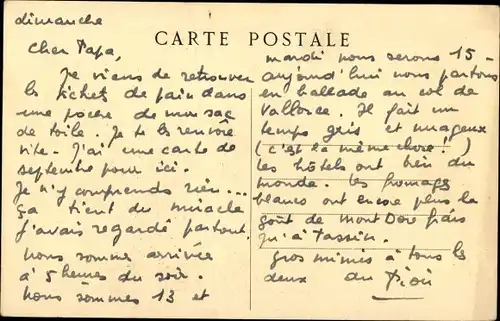 dimanche
CARTE POSTALE
Cher Papa,
Je viens de retrouver
les tickets de pain dans
une poche de mon sac
de toile. Je te les renvoie
vite. J'ai une carte de
septembre pour ici.
Je n'y comprends rien...
ça tient du miracle
j'avais regardé partout.
Nous sommes arrivée
à 5 heures du soir.
Nous sommes 13 et
mardi nous serons 15 -
aujourd'hui nous partons
en ballade au col de
Il fait un
temps gris et nuageux
(c'est la même chose!)
les hôtels ont bien du
monde. Les fromages
blancs ont encore plus le
goût de Mont Dore frais
qu'à Tassin.
gros mimes à tous les
deux du Piou